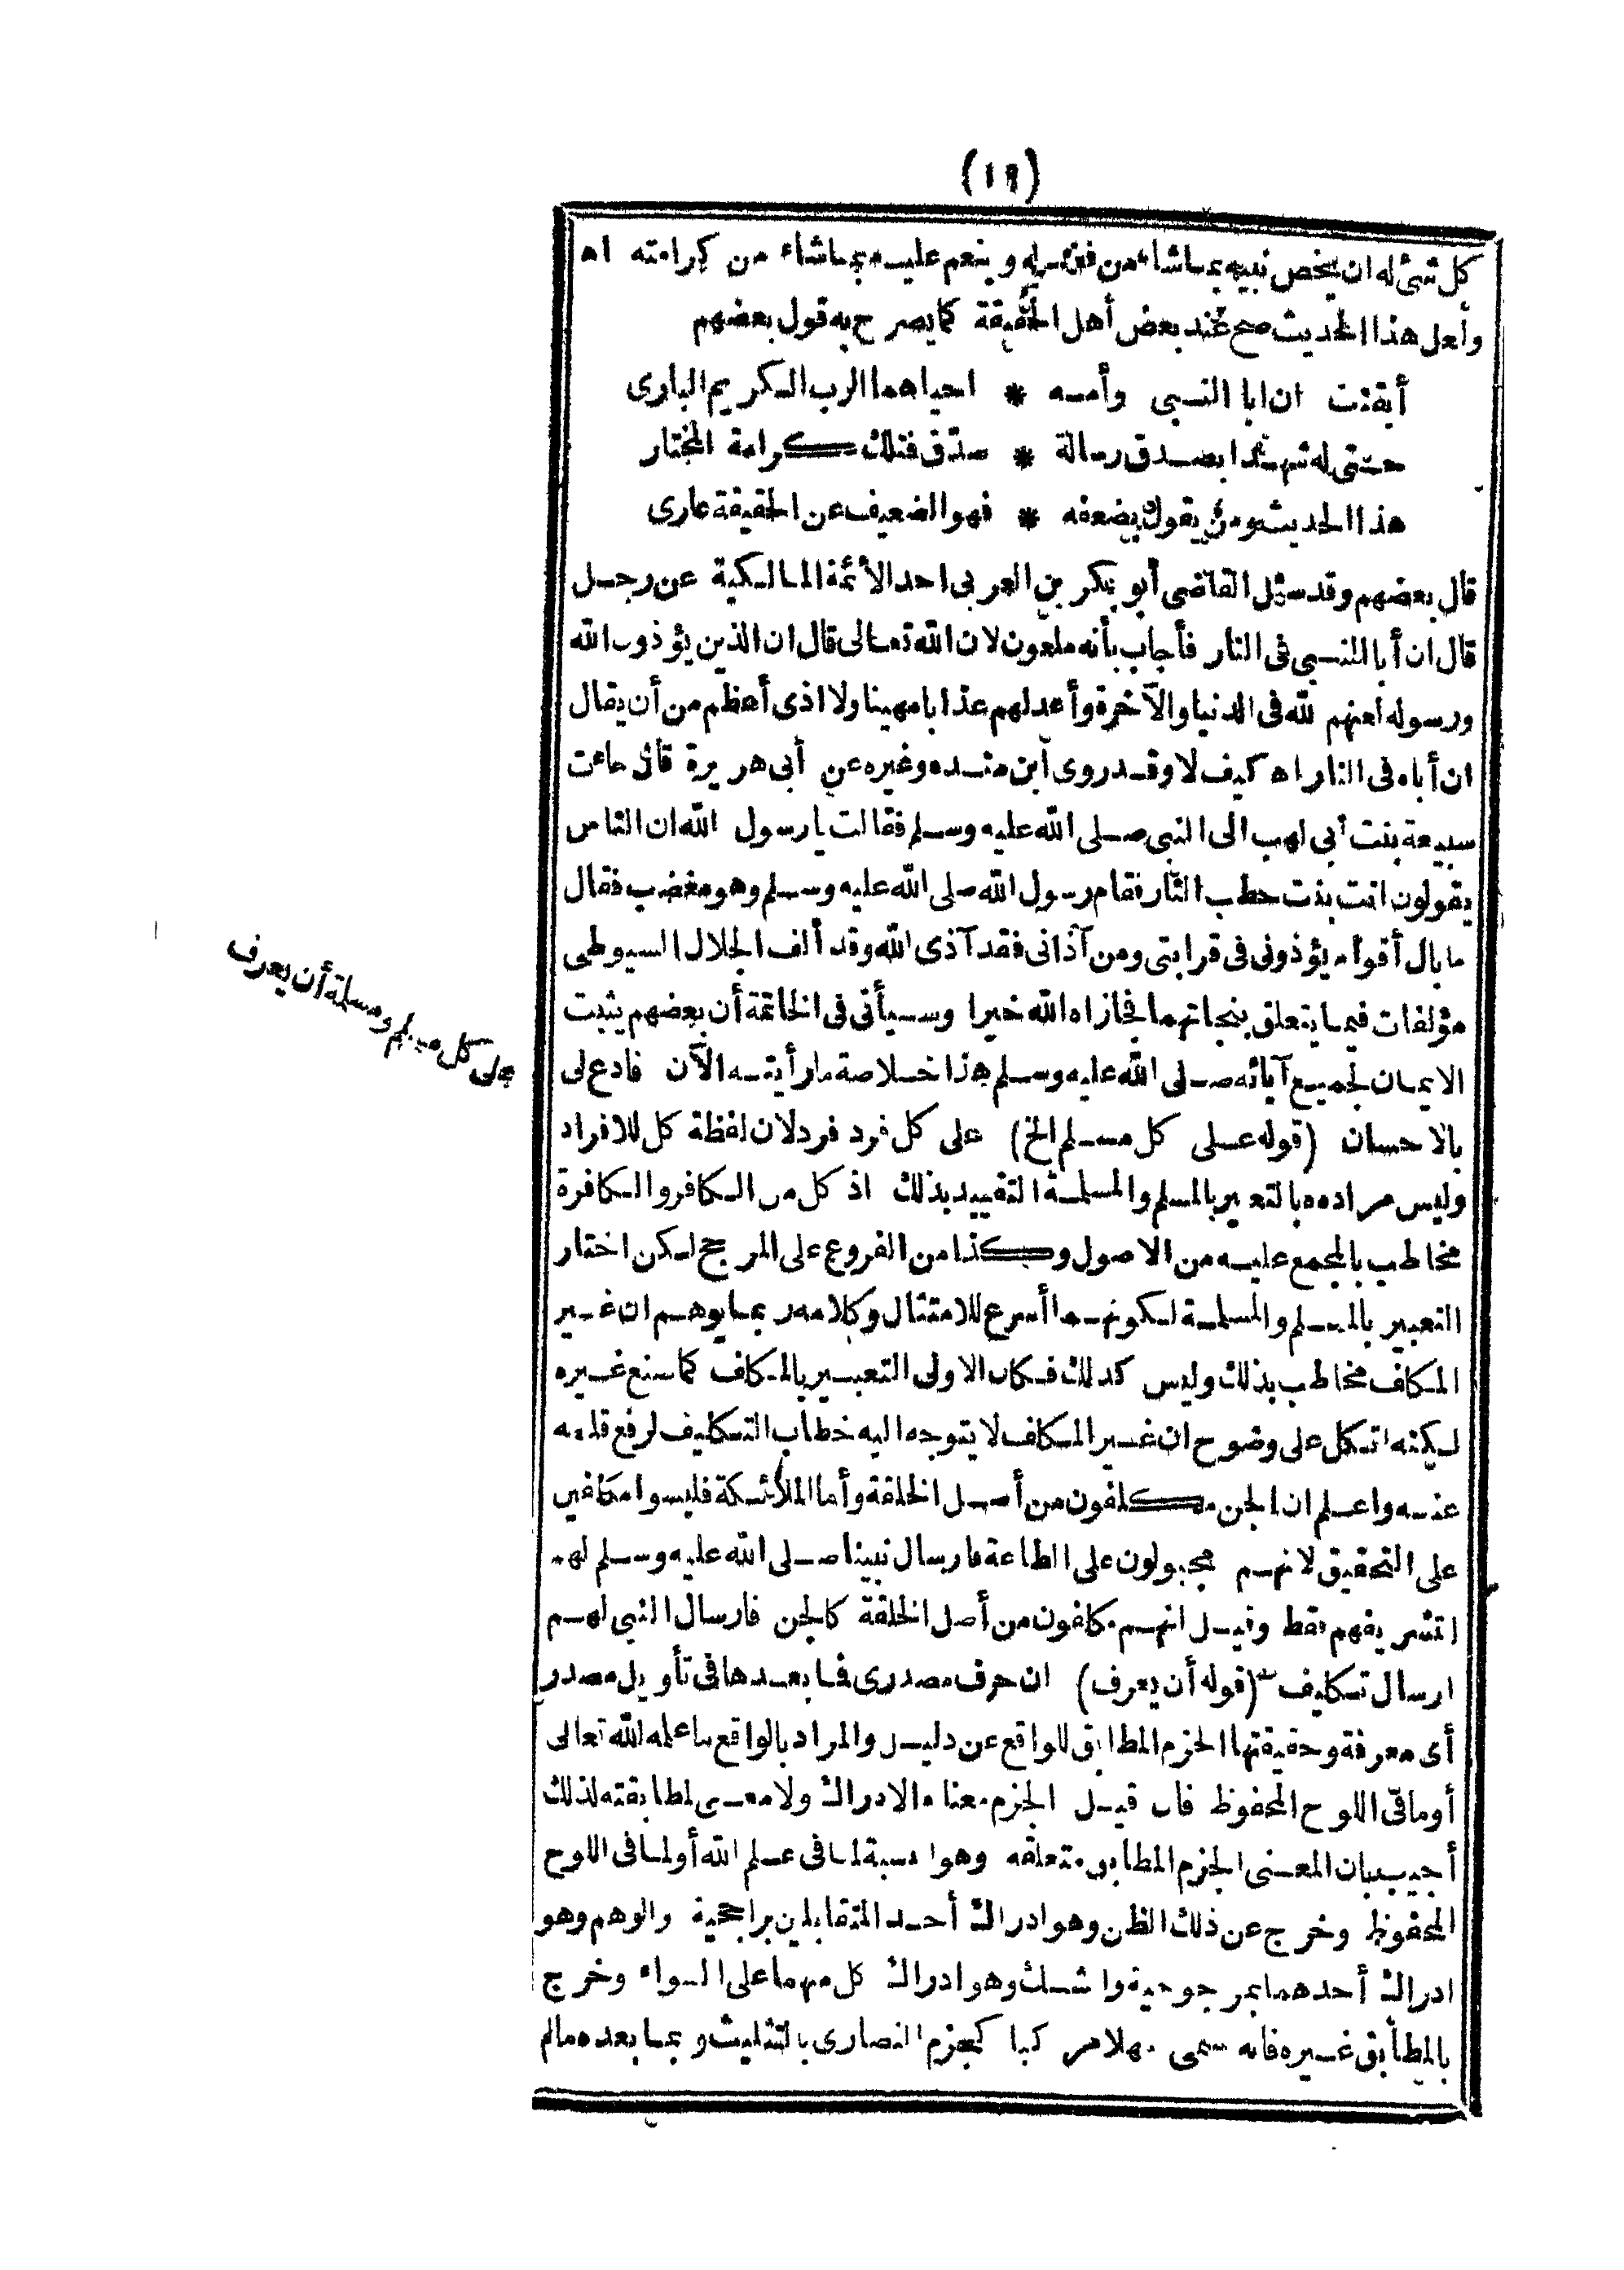 (١٩)
كل شئ له ان يخص نبيه بما شاء من فضله وينعم عليه بما شاء من كرامته اه
ولعل هذا الحديث صح عند بعض أهل الحقيقة كما يصرح به قول بعضهم
أيقنت ان ابا النبى وأمه * احياهما الرب الكريم البارى
حتى له شهدا بصدق رسالة * صدق فتلك كرامة المختار
هذا الحديث ومن يقول بضعفه * فهو الضعيف عن الحقيقة عارى
قال بعضهم وقد سئل القاضى أبو بكر بن العربى احد الأئمة المالكية عن رجل
قال ان أبا النبى فى النار فأجاب بأنه ملعون لان الله تعالى قال ان الذين يؤذون الله
ورسوله لعنهم الله فى الدنيا والآخرة وأعد لهم عذابا مهينا ولا اذى أعظم من أن يقال
ان أباه فى النار اه كيف لا وقد روى ابن منده وغيره عن أبى هريرة قال جاءت
سبيعة بنت أبى لهب الى النبى صلى الله عليه وسلم فقالت يا رسول الله ان الناس
يقولون انت بنت حطب النار فقام رسول الله صلى الله عليه وسلم وهو مغضب فقال
ما بال أقوام يؤذونى فى قرابتى ومن آذانى فقد آذى الله وقد ألف الجلال السيوطى
مؤلفات فيما يتعلق بنجاتهما فجازاه الله خيرا وسيأتى فى الخاتمة أن بعضهم يثبت
الايمان لجميع آبائه صلى الله عليه وسلم هذا خلاصة ما رأيته الآن فادع لى
بالاحسان (قوله على كل مسلم الخ) على كل فرد فرد لان لفظة كل للافراد
وليس مراده بالتعبير بالمسلم والمسلمة التقييد بذلك اذ كل من الكافر والكافرة
مخاطب بالمجمع عليه من الاصول وكذا من الفروع على المرجح لكن اختار
التعبير بالمسلم والمسلمة لكونهما أسرع للامتثال وكلامه ربما يوهم ان غير
المكلف مخاطب بذلك وليس كذلك فكان الاولى التعبير بالمكلف كما صنع غيره
لكنه اتكل على وضوح ان غير المكلف لا يتوجه اليه خطاب التكليف لرفع قلمه
عنه واعلم ان الجن مكلفون من أصل الخلقة وأما الملائكة فليسوا مكلفين
على التحقيق لانهم مجبولون على الطاعة فارسال نبينا صلى الله عليه وسلم لهم
لتشريفهم فقط وقيل انهم مكلفون من أصل الخلقة كالجن فارسال النبى لهم
ارسال تكليف (قوله أن يعرف) ان حرف مصدرى فما بعدها فى تأويل مصدر
أى معرفة وحقيقتها الجزم المطابق للواقع عن دليل والمراد بالواقع ما علمه الله تعالى
أو ما فى اللوح المحفوظ فان قيل الجزم معناه الادراك ولا معنى لمطابقته لذلك
أجيب بان المعنى الجزم المطابق متعلقه وهو النسبة لما فى علم الله أو لما فى اللوح
المحفوظ وخرج عن ذلك الظن وهو ادراك أحد المتقابلين براجحية والوهم وهو
ادراك أحدهما بمرجوحية والشك وهو ادراك كل منهما على السواء وخرج
بالمطابق غيره فانه يسمى جهلا مركبا كجزم النصارى بالتثليث وبما بعده ما لم
على كل مسلم ومسلمة أن يعرف